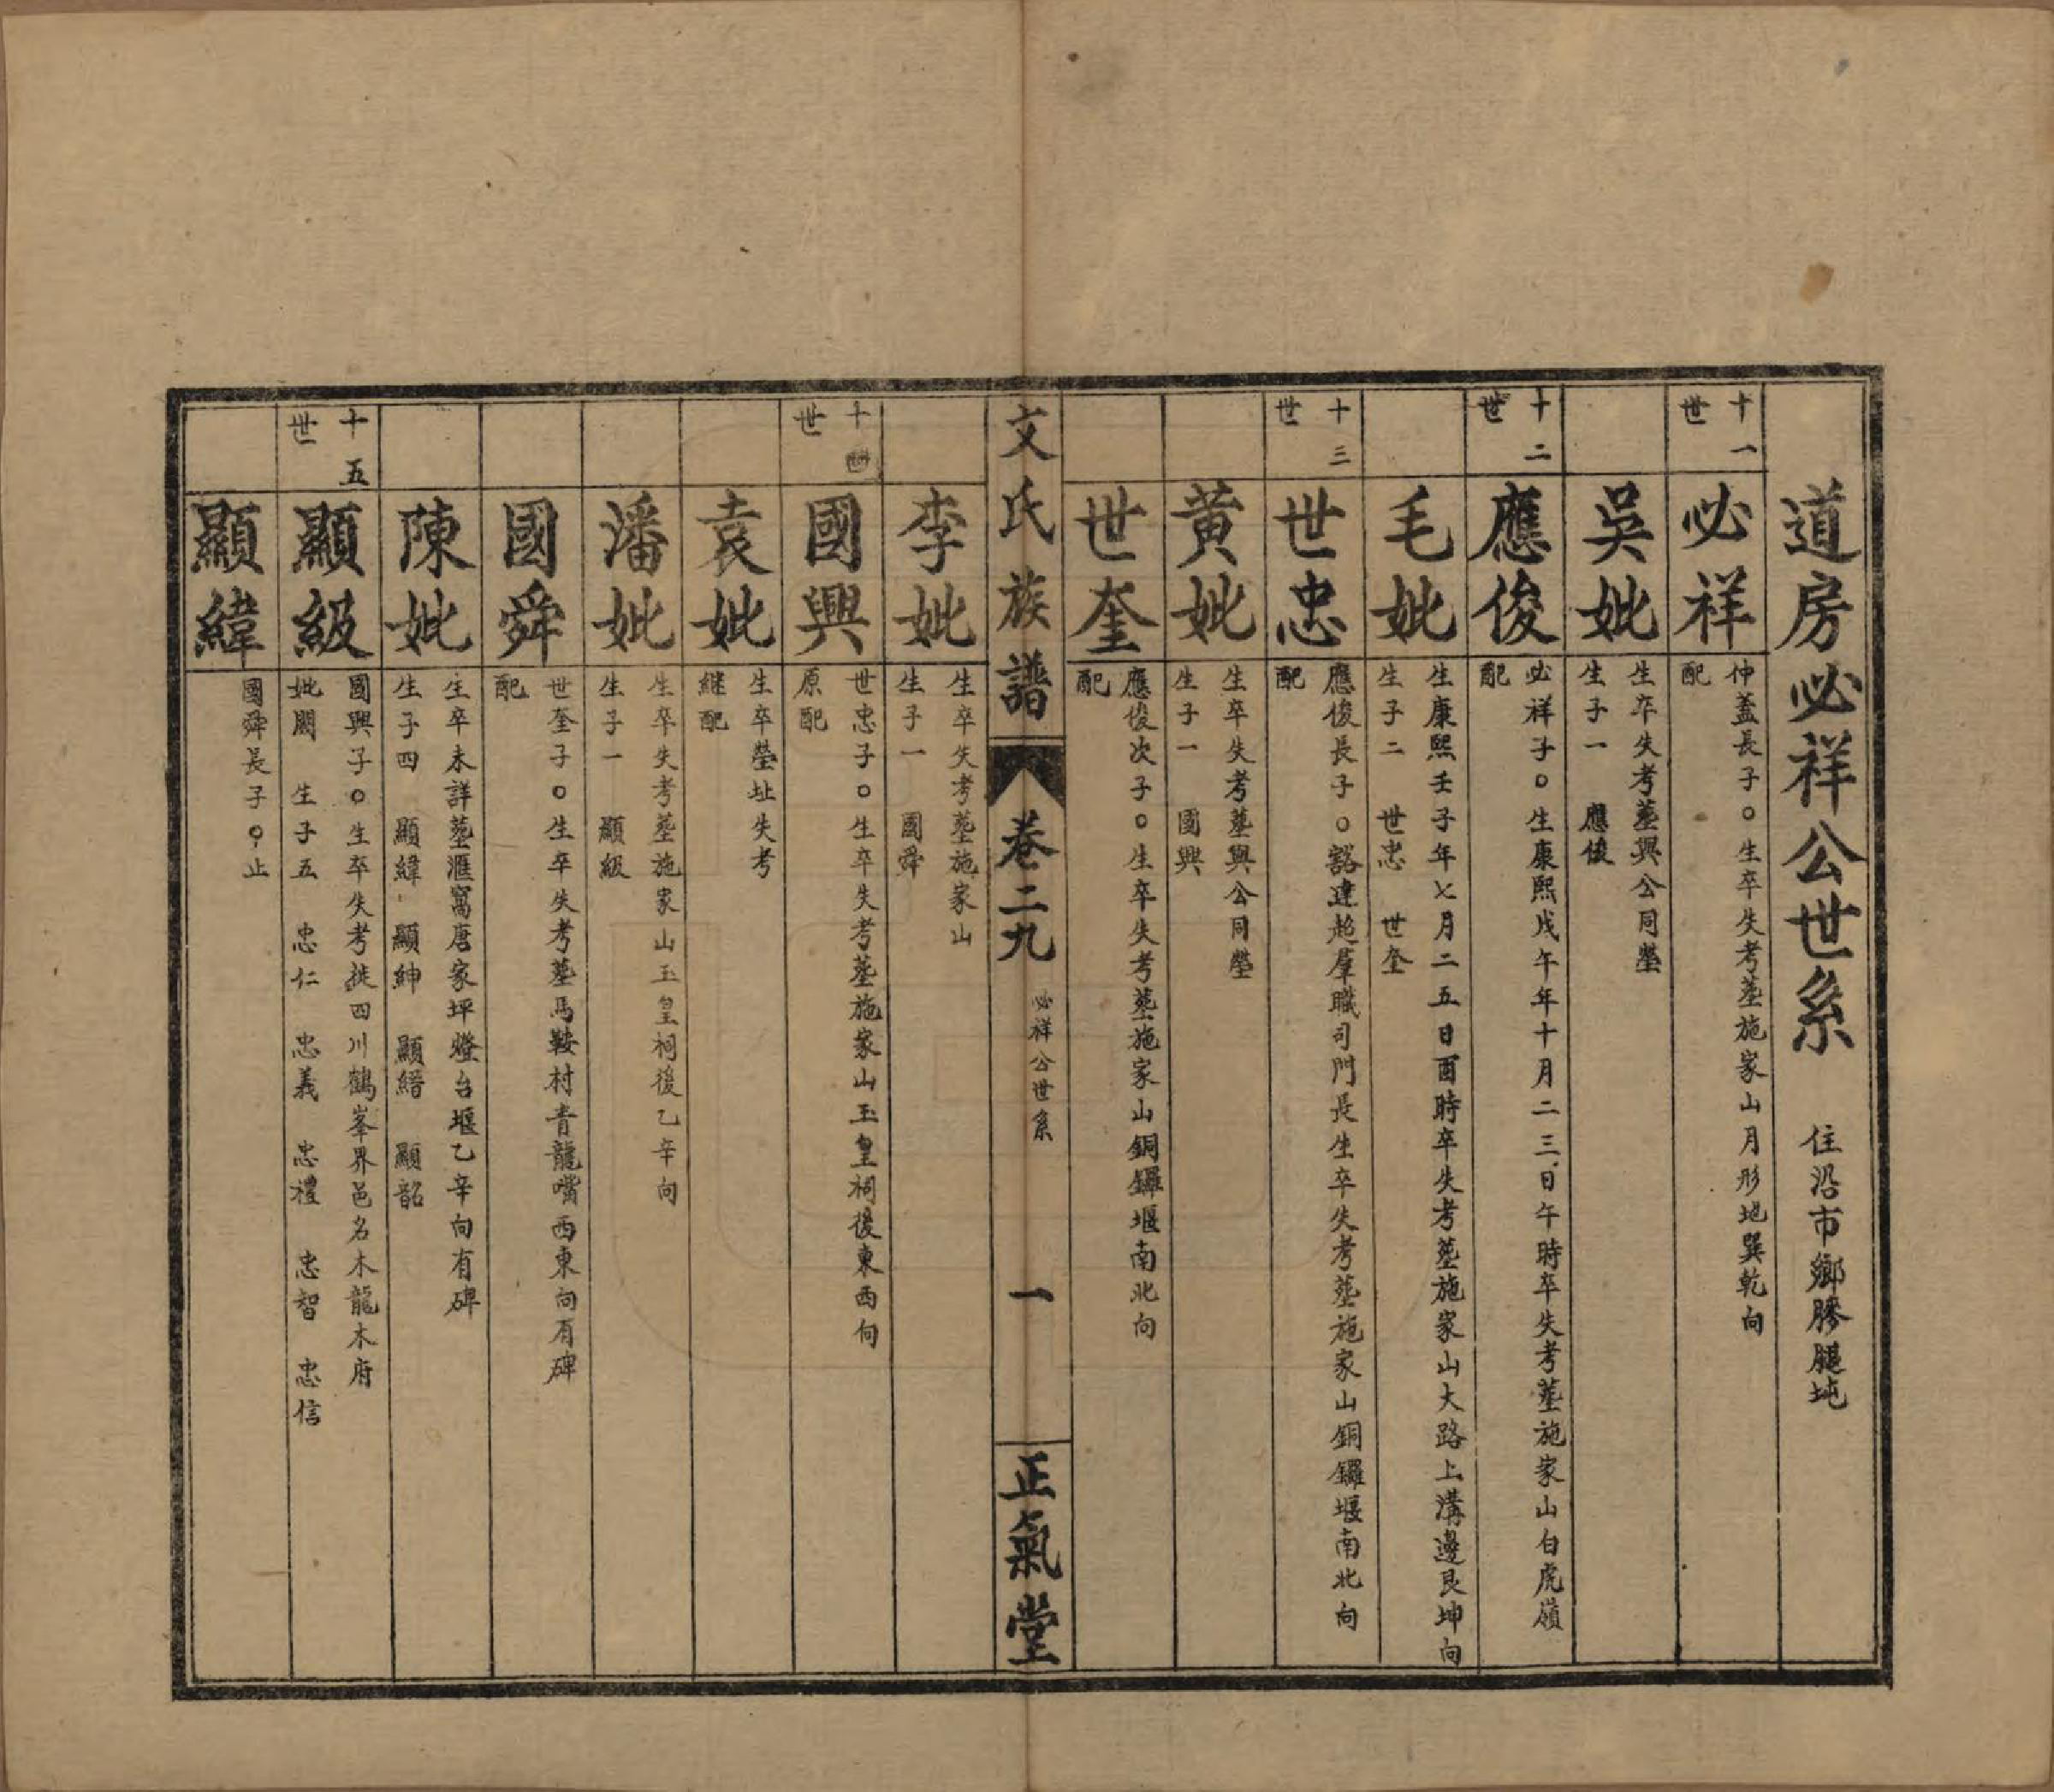 道房必祥公世系 住沿市鄉勝腿坉
十一世
必祥
仲蓋長子○生卒失考墓施家山月形地巽乾向
配
吳妣
生卒失考墓與公同塋
生子一 應俊
十二世
應俊
必祥子○生康熙戊午年十月二三日午時卒失考墓施家山白虎嶺
配
毛妣
生康熙壬子年七月二五日酉時卒失考墓施家山大路上溝邊艮坤向
生子二 世忠 世奎
十三世
世忠
應俊長子○豁達超羣職司門長生卒失考墓施家山銅鑼堰南北向
配
黄妣
生卒失考墓與公同塋
生子一 國興
世奎
應俊次子○生卒失考墓施家山銅鑼堰南北向
配
文氏族譜 卷二九 必祥公世系 一 正氣堂
李妣
生卒失考墓施家山
生子一 國舜
十四世
國興
世忠子○生卒失考墓施家山玉皇祠後東西向
原配
袁妣
生卒塋址失考
継配
潘妣
生卒失考墓施家山玉皇祠後乙辛向
生子一 顯級
國舜
世奎子○生卒失考墓馬鞍村青龍嘴西東向有碑
配
陳妣
生卒未詳墓滙窩唐家坪燈台堰乙辛向有碑
生子四 顯緯 顯紳 顯縉 顯韶
十五世
顯級
國興子○生卒失考徙四川鶴峯界邑名木龍木府
妣闕 生子五 忠仁 忠義 忠禮 忠智 忠信
顯緯
國舜長子○止